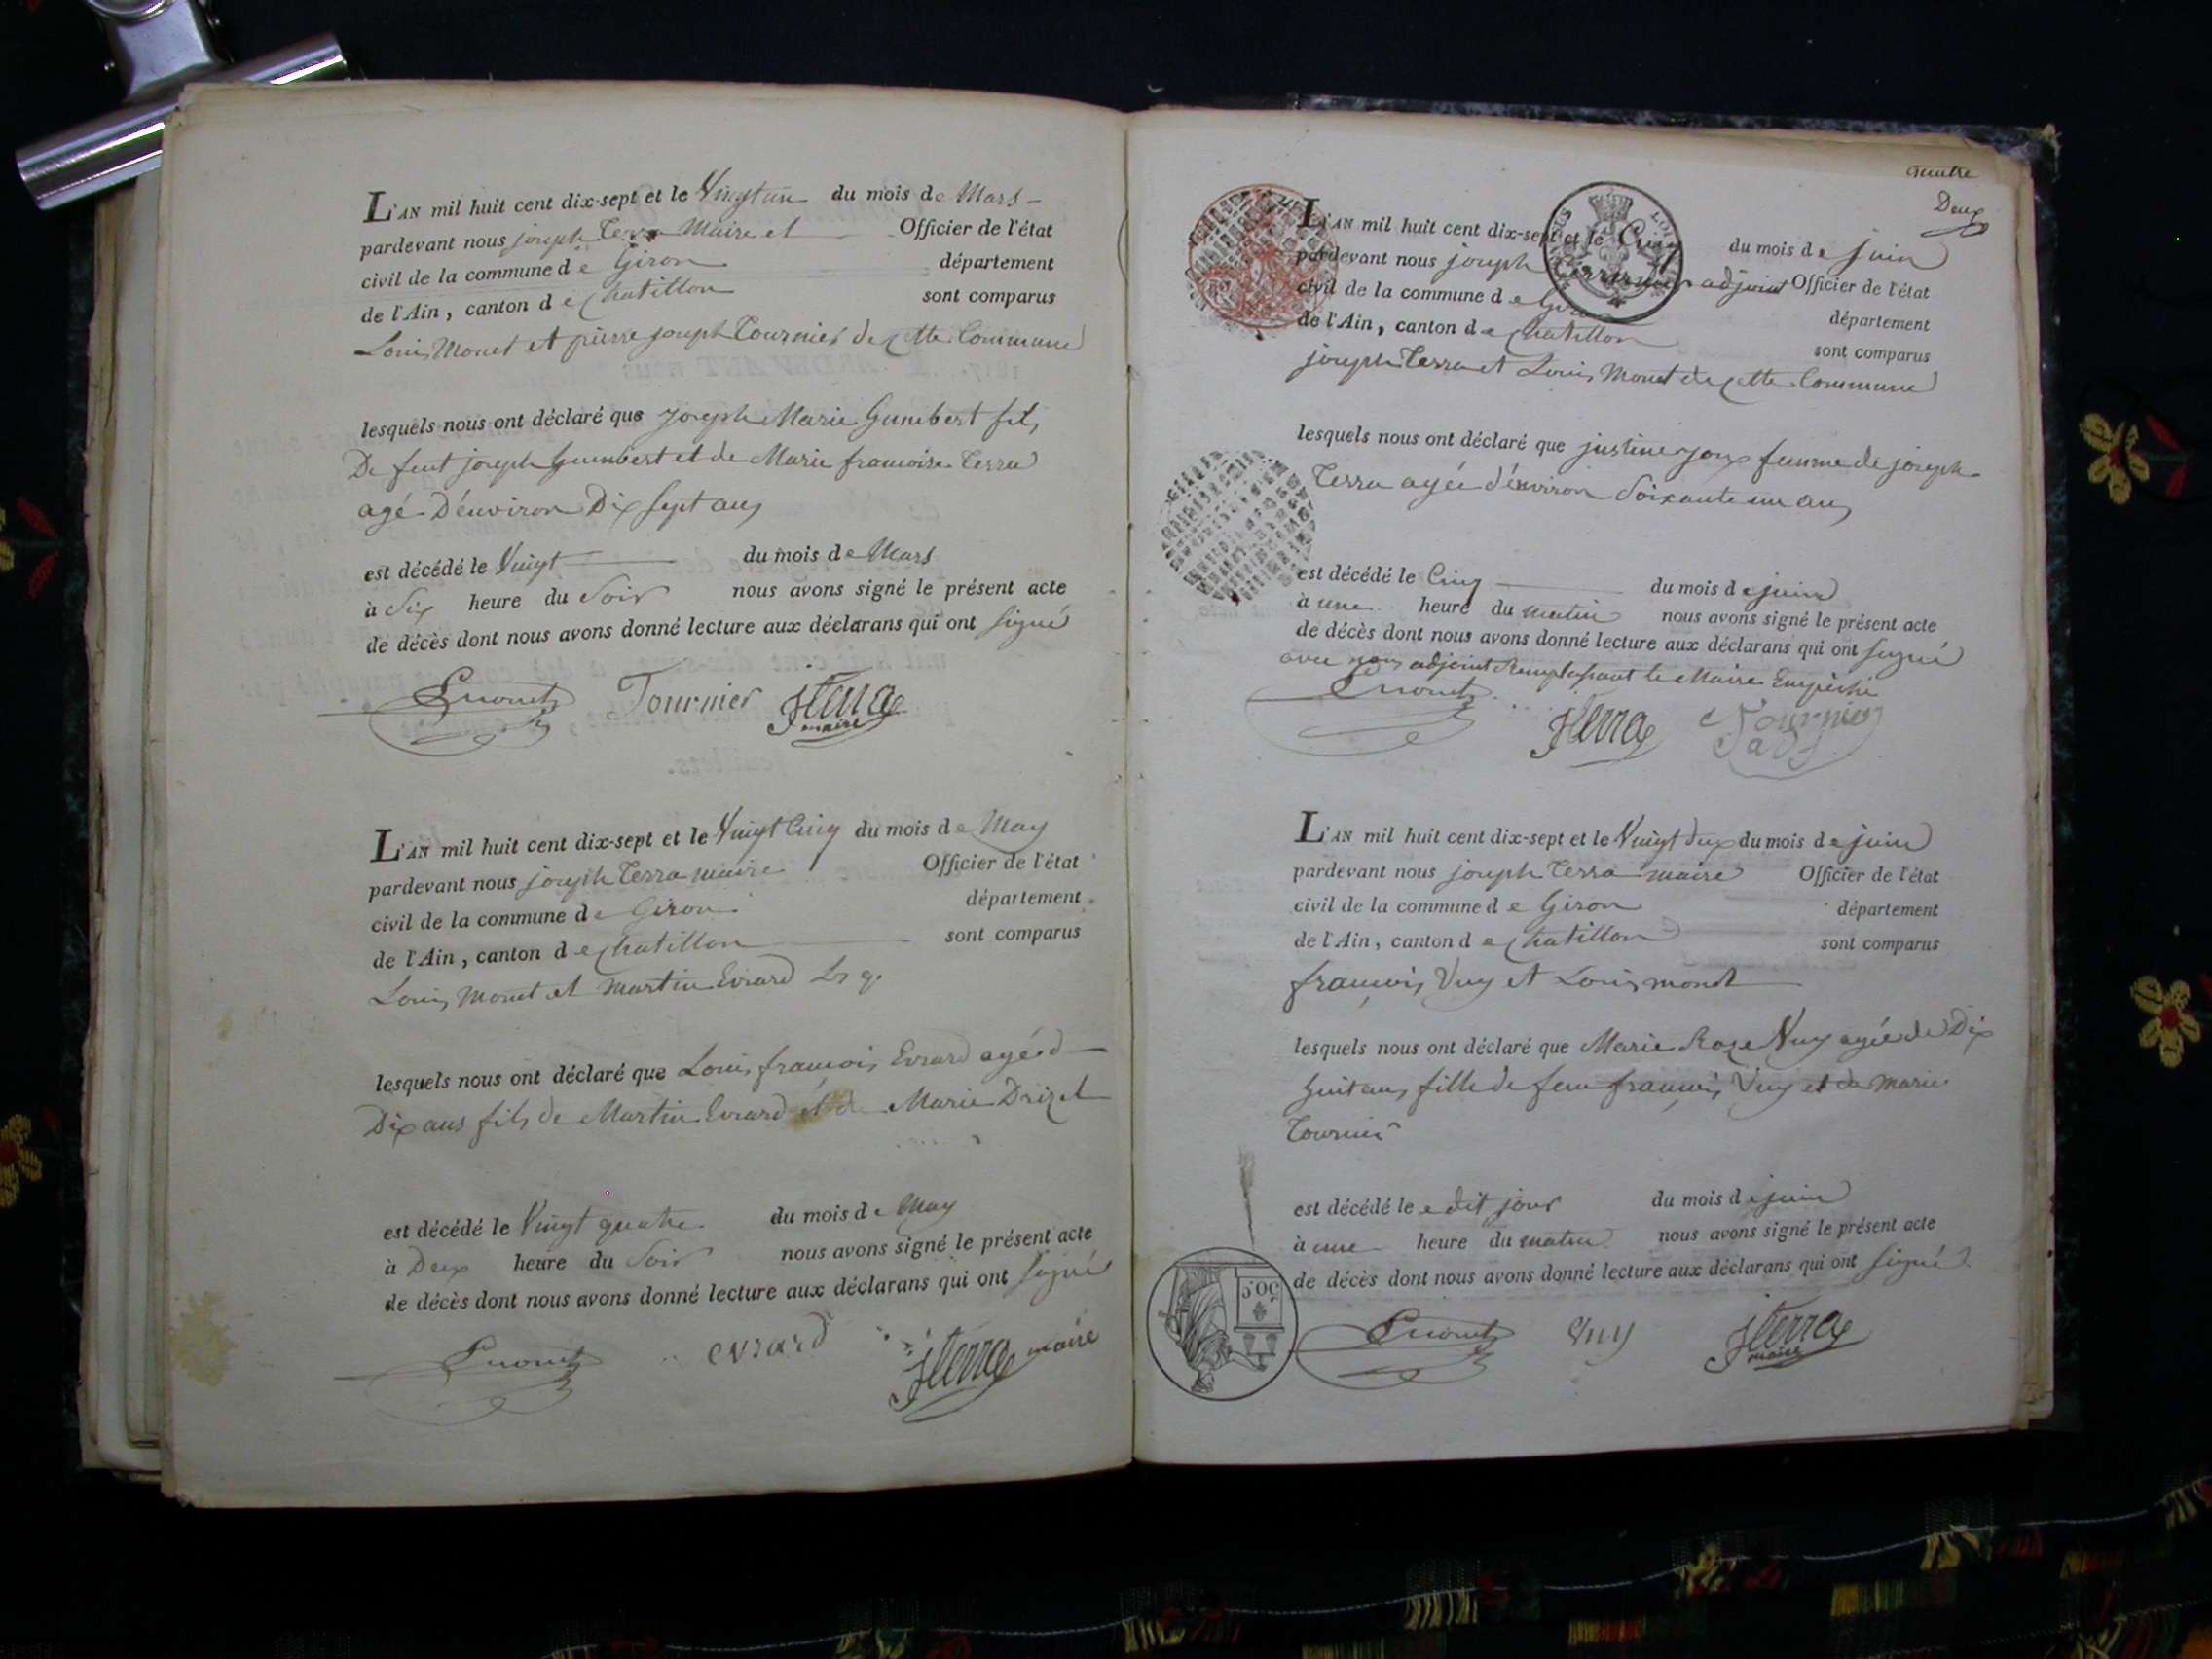 L'AN mil huit cent dix-sept et le Vingt un du mois de Mars
pardevant nous joseph Terra Maire et Officier de l'état
civil de la commune de Giron département
de l'Ain, canton de Chatillon sont comparus
Louis Monet et pierre joseph Tournier de cette Commune
lesquels nous ont déclaré que joseph Marie Gumbert fils
De feut joseph Gumbert et de Marie francoise Terra
agé D'environ Dix Sept ans
est décédé le Vingt du mois de Mars
à Six heure du Soir nous avons signé le présent acte
de décès dont nous avons donné lecture aux déclarans qui ont signé
Monet Tournier JTerra
maire
L'AN mil huit cent dix-sept et le Vingt Cinq du mois de May
pardevant nous joseph Terra maire Officier de l'état
civil de la commune de Giron département
de l'Ain, canton de Chatillon sont comparus
Louis Monet et Martin Evrard
lesquels nous ont déclaré que Louis françois Evrard agé d
Dix ans fils de Martin Evrard et de Marie Drizet
est décédé le Vingt quatre du mois de May
à Deux heure du Soir nous avons signé le présent acte
de décès dont nous avons donné lecture aux déclarans qui ont signé
Monet evrard JTerra maire
Deux
L'AN mil huit cent dix-sept et le Cinq du mois de juin
pardevant nous joseph Tournier adjoint Officier de l'état
civil de la commune de Giron département
de l'Ain, canton de Chatillon sont comparus
joseph Terra et Louis Monet de cette Commune
lesquels nous ont déclaré que justine joux femme de joseph
Terra agée d'environ Soixante un ans
est décédé le Cinq du mois de juin
à une heure du matin nous avons signé le présent acte
de décès dont nous avons donné lecture aux déclarans qui ont signé
avec nous adjoint Remplassant le Maire Empéché
Monet JTerra Tournier
adj
L'AN mil huit cent dix-sept et le Vingt deux du mois de juin
pardevant nous joseph Terra maire Officier de l'état
civil de la commune de Giron département
de l'Ain, canton de Chatillon sont comparus
françois Vuy et Louis monet
lesquels nous ont déclaré que Marie Roze Vuy agée de Dix
huit ans fille de feu françois Vuy et de marie
Tournier
est décédé le edit jour du mois de juin
à une heure du matin nous avons signé le présent acte
de décès dont nous avons donné lecture aux déclarans qui ont signé
50.C
Monet Vuy JTerra
maire